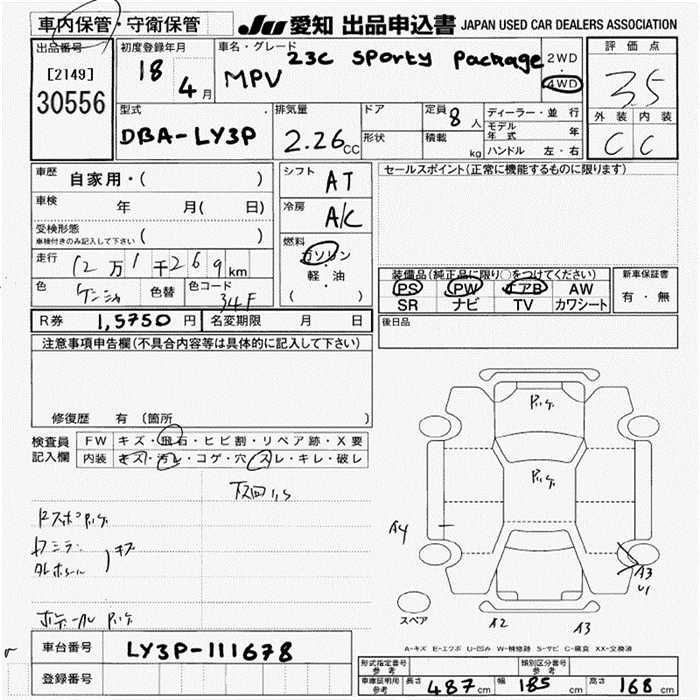 車内保管・守衛保管
JU 愛知 出品申込書 JAPAN USED CAR DEALERS ASSOCIATION
出品番号
[2149]
30556
初度登録年月
18 4月
車名・グレード
23C Sporty Package
MPV
2WD
・
4WD
評価点
3.5
外装 内装
C C
型式
DBA-LY3P
排気量
2.26cc
ドア
形状
定員 8人
積載 kg
ディーラー・並行
モデル年式 年
ハンドル 左・右
車歴 自家用・( )
車検 年 月( 日)
受検形態
車検付きのみ記入して下さい ( )
走行 12万1千269km
色
色替
色コード
34F
シフト AT
冷房 A/C
燃料
ガソリン
・
軽・油
( )
セールスポイント(正常に機能するものに限ります)
装備品(純正品に限り○をつけてください)
PS PW エアB AW
SR ナビ TV カワシート
新車保証書
有・無
後日品
R券 1,5750円 名変期限 月 日
注意事項申告欄(不具合内容等は具体的に記入して下さい)
修復歴 有 (箇所
検査員記入欄
FW キズ・飛石・ヒビ割・リペア跡・X要
内装 キズ・汚レ・コゲ・穴・スレ・キレ・破レ
下回りS
A4
A3
U1
A2
A3
スペア
A-キズ E-エクボ U-凹み W-補修跡 S-サビ C-腐食 XX-交換済
車台番号 LY3P-111678
登録番号
形式指定番号 参考
類別区分番号 参考
車庫証明用 参考
長さ 487cm 幅 185cm 高さ 168cm